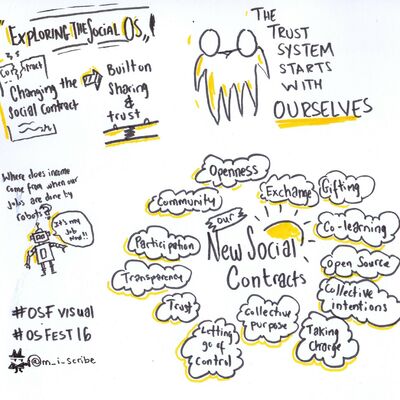 "EXPLORING THE SOCIAL OS,,!
Contract
Changing the
social contract
Built on
Sharing
&
trust
THE
TRUST
SYSTEM
STARTS
WITH
OURSELVES
Where does income
come from when our
jobs are done by
robots?
it's my
Job
now!!
#OSFvisual
#OSFEST16
@m_i_scribe
Openness
Exchange
Gifting
Community
Co-learning
our
New Social
Contracts
Participation
Open Source
Transparency
Collective
intentions
Trust
Collective
purpose
Letting
go of
control
Taking
Charge